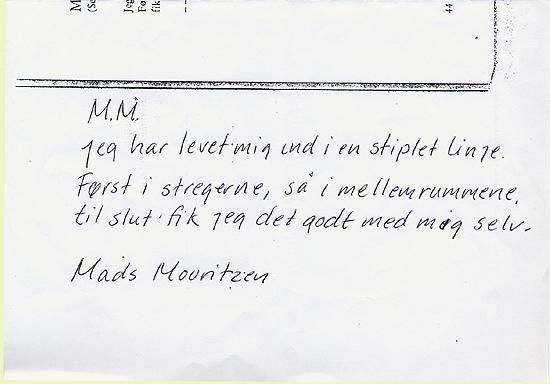 M
(Se
Jeg
Fø
fik
44
M.M.
Jeg har levet mig ind i en stiplet linje.
Først i stregerne, så i mellemrummene,
til slut fik jeg det godt med mig selv.
Mads Mouritzen